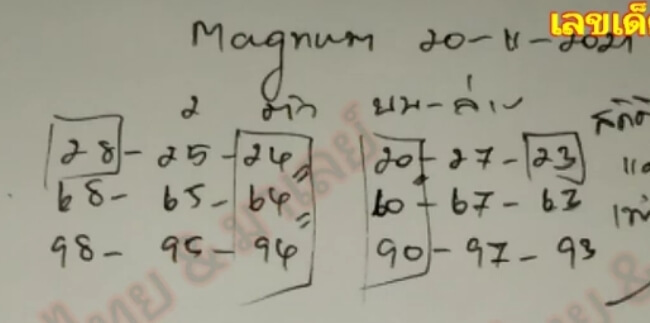 เลขเด็
Magnum 20-11-2021
2 ตัว บน-ล่าง
28 - 25 - 24 20 - 27 - 23
68 - 65 - 64 60 - 67 - 63
98 - 95 - 94 90 - 97 - 93